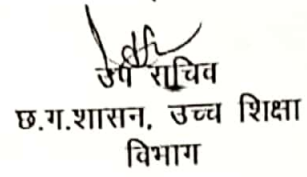 उप सचिव
छ.ग.शासन, उच्च शिक्षा
विभाग